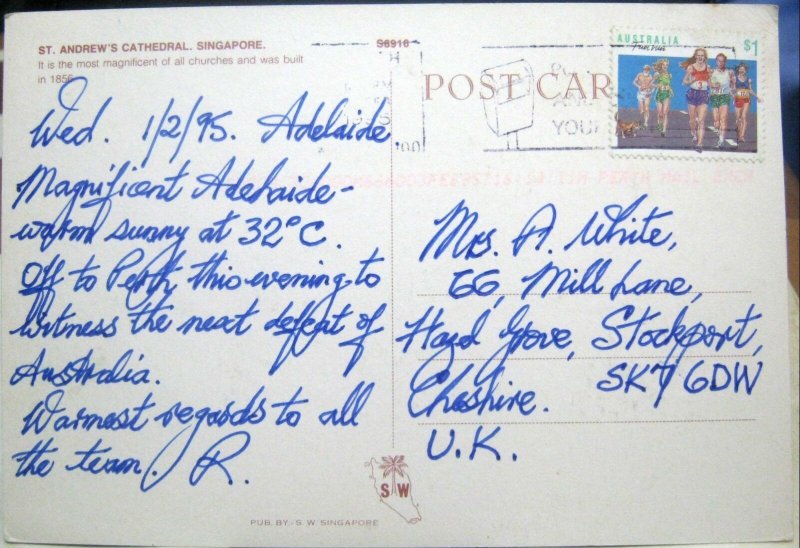 ST. ANDREW'S CATHEDRAL. SINGAPORE.
It is the most magnificent of all churches and was built
in 1856
S6916
POST CARD
AUSTRALIA
$1
Fun run
YOUR
Wed. 1/2/95. Adelaide
Magnificent Adelaide -
warm sunny at 32°C.
Off to Perth this evening to
witness the next defeat of
Australia.
Warmest regards to all
the team. R.
Mrs. A. White,
66, Mill Lane,
Hazel Grove, Stockport,
Cheshire. SK7 6DW
U.K.
S W
PUB. BY:- S W SINGAPORE